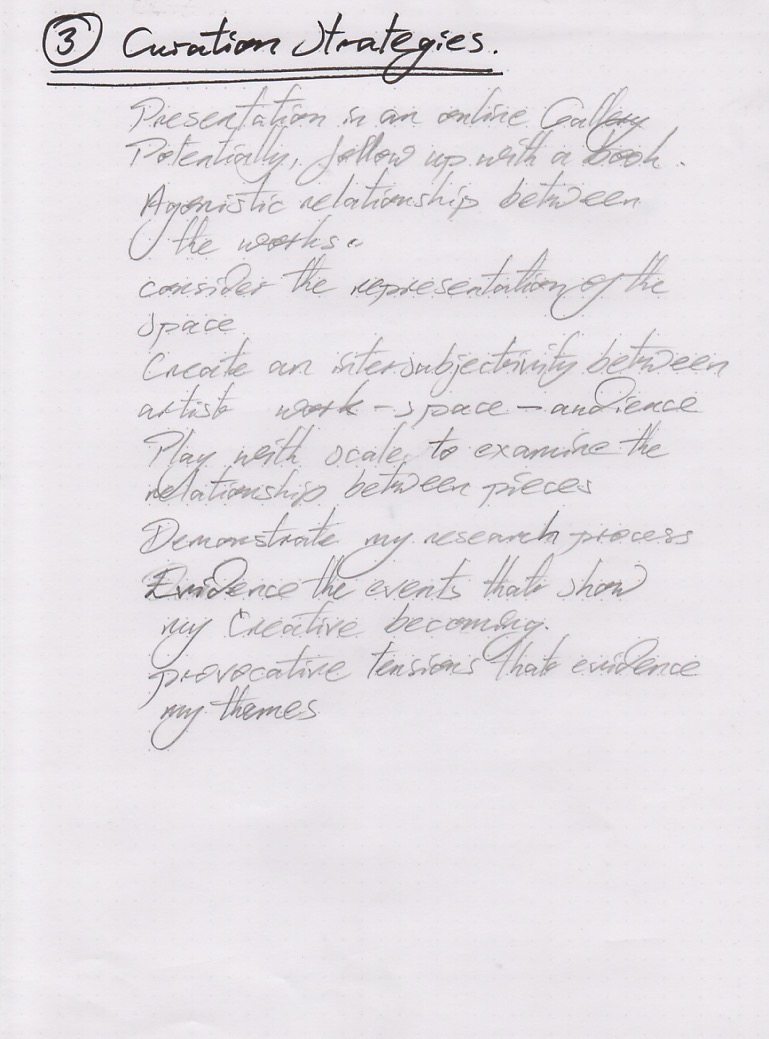 3 Curation Strategies.
Presentation in an online Gallery
Potentially, follow up with a book.
Agonistic relationship between
the works.
consider the representation of the
space
Create an intersubjectivity between
artist work - space - audience
Play with scale to examine the
relationship between pieces
Demonstrate my research process
Evidence the events that show
my Creative becoming.
provocative tensions that evidence
my themes